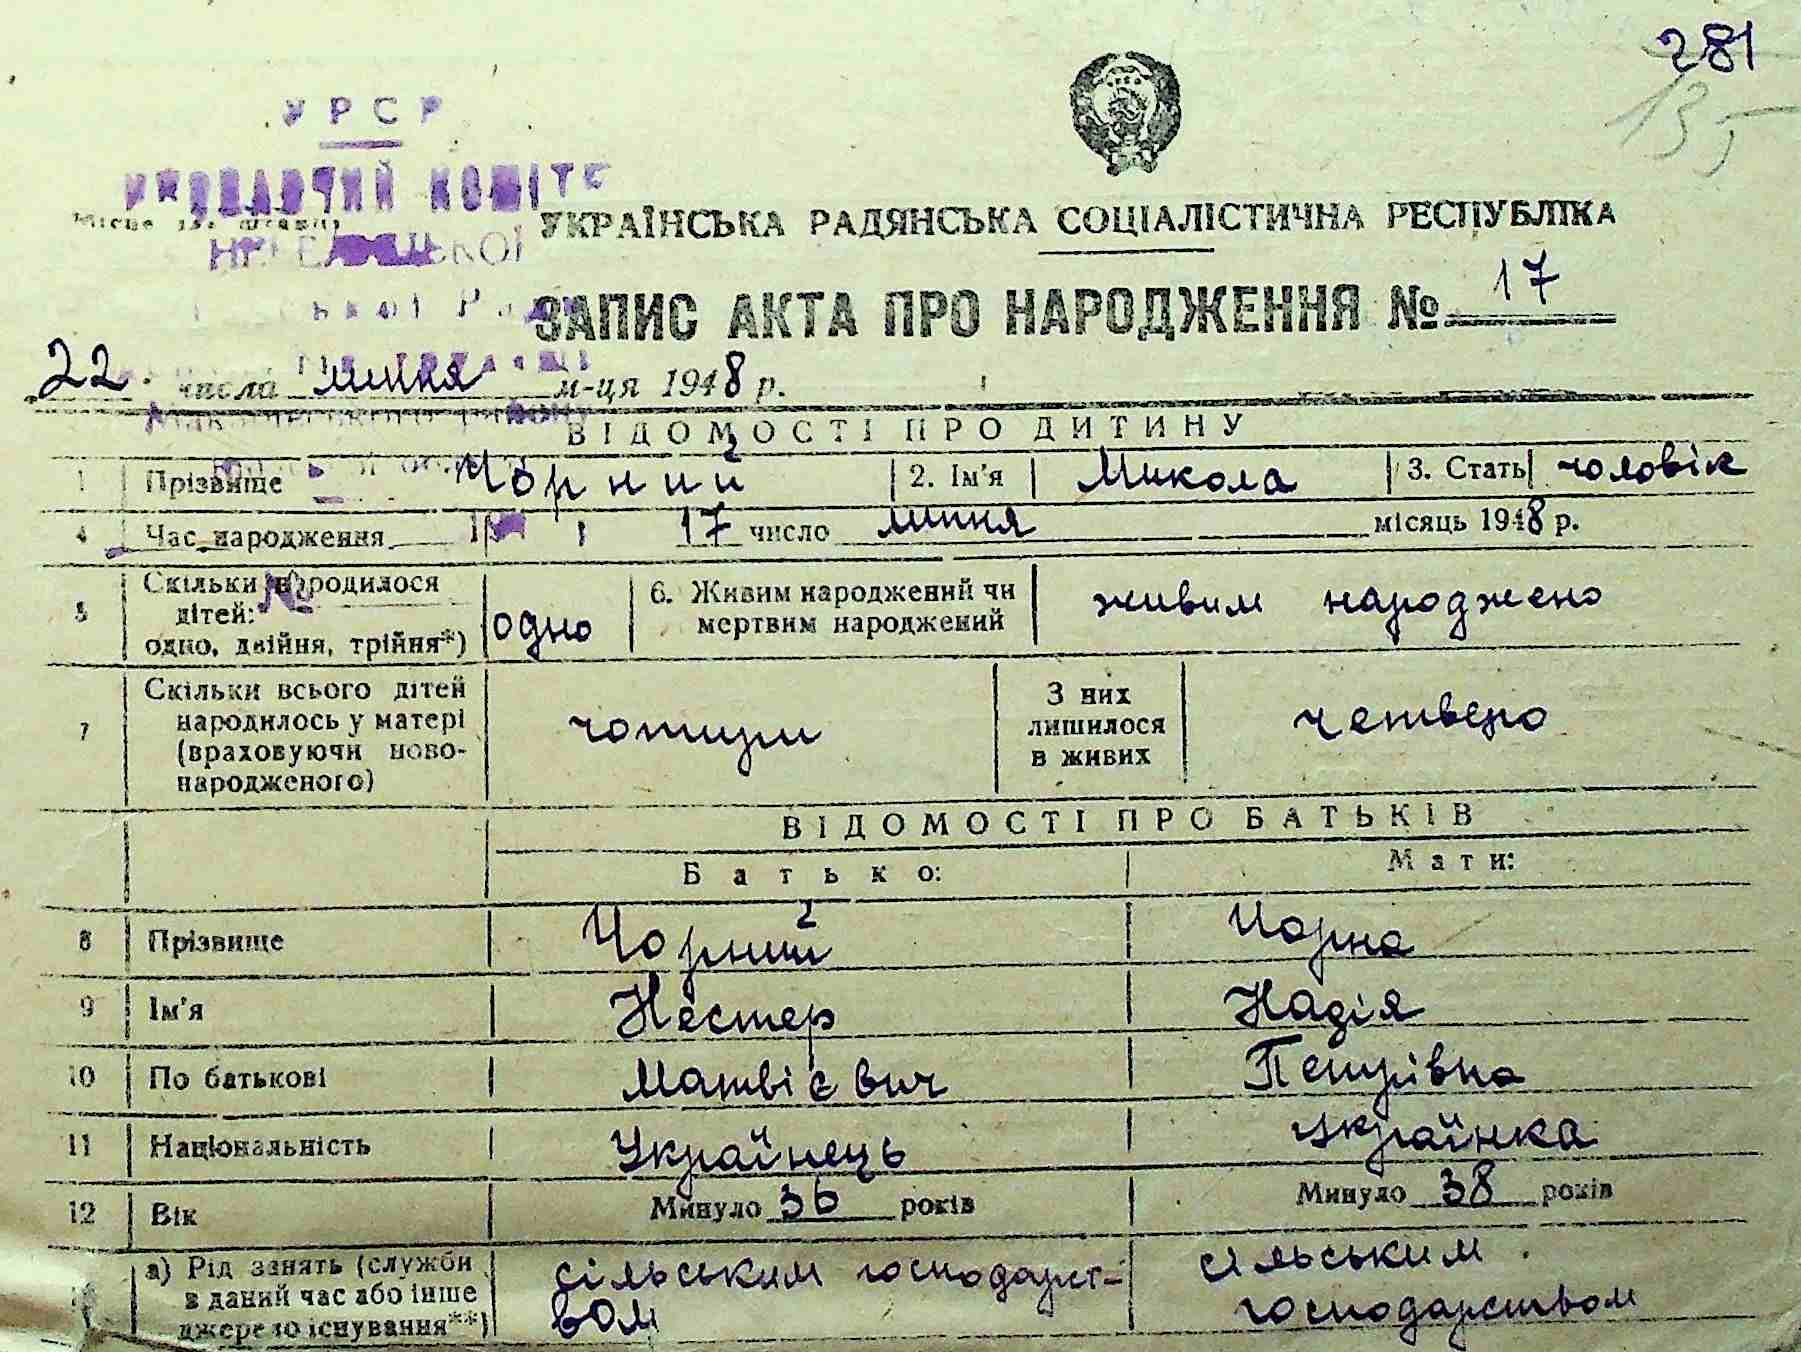 281
135
УРСР
ВИКОНАВЧИЙ КОМІТЕ
УКРАЇНСЬКА РАДЯНСЬКА СОЦІАЛІСТИЧНА РЕСПУБЛІКА
ЗАПИС АКТА ПРО НАРОДЖЕННЯ № 17
22 числа липня м-ця 1948 р.
ВІДОМОСТІ ПРО ДИТИНУ
1 Прізвище Чорний 2. Ім'я Микола 3. Стать чоловік
4 Час народження 17 число липня місяць 1948 р.
5 Скільки народилося дітей: одно, двійня, трійня*) одно 6. Живим народжений чи мертвим народжений живим народжено
7 Скільки всього дітей народилось у матері (враховуючи новонародженого) чотири З них лишилося в живих четверо
ВІДОМОСТІ ПРО БАТЬКІВ
Батько: Мати:
8 Прізвище Чорний Чорна
9 Ім'я Нестер Надія
10 По батькові Матвієвич Петрівна
11 Національність Українець Українка
12 Вік Минуло 36 років Минуло 38 років
а) Рід занять (служби в даний час або інше джерело існування**) сільським господарством сільським господарством